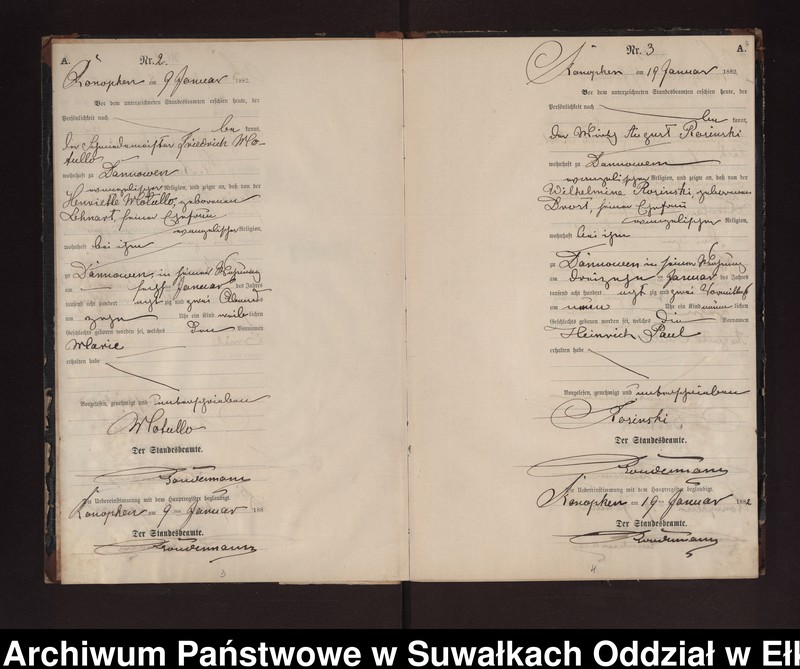 A.
Nr. 2.
Konopken am 9 Januar 1882.
Vor dem unterzeichneten Standesbeamten erschien heute, der
Persönlichkeit nach
be kannt,
der Schmiedemeister Friedrich Mo-
tullo
wohnhaft zu Dannowen
evangelischer Religion, und zeigte an, daß von der
Henriette Motullo, geborenen
Lehnart, seiner Ehefrau
evangelischer Religion,
wohnhaft bei ihm
zu Dannowen, in seiner Wohnung
am sechs Januar des Jahres
tausend acht hundert acht zig und zwei Abends
um zehn Uhr ein Kind weib lichen
Geschlechts geboren worden sei, welches den Vornamen
Marie
erhalten habe
Vorgelesen, genehmigt und unterschrieben
Motullo
Der Standesbeamte.
Die Uebereinstimmung mit dem Hauptregister beglaubigt.
Konopken am 9 Januar 188
Der Standesbeamte.
3
Nr. 3
A.
Konopken am 19 Januar 1882.
Vor dem unterzeichneten Standesbeamten erschien heute, der
Persönlichkeit nach
be kannt,
der Wirth August Rosinski
wohnhaft zu Dannowen
evangelischer Religion, und zeigte an, daß von der
Wilhelmine Rosinski, geborenen
seiner Ehefrau
evangelischer Religion,
wohnhaft bei ihm
zu Dannowen in seiner Wohnung
am dreizehn Januar des Jahres
tausend acht hundert acht zig und zwei Vormittags
um neun Uhr ein Kind männ lichen
Geschlechts geboren worden sei, welches die Vornamen
Heinrich Paul
erhalten habe
Vorgelesen, genehmigt und unterschrieben
Rosinski
Der Standesbeamte.
Die Uebereinstimmung mit dem Hauptregister beglaubigt.
Konopken am 19 Januar 1882
Der Standesbeamte.
4
Archiwum Państwowe w Suwałkach Oddział w Eł